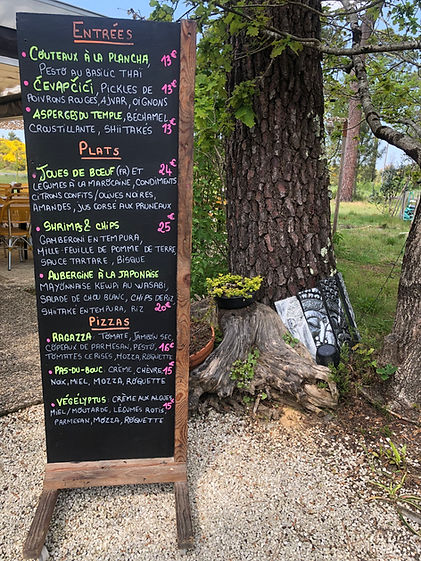 ENTRÉES
COUTEAUX À LA PLANCHA, 13€
PESTO AU BASILIC THAÏ
ČEVAPČIČI, PICKLES DE 13€
POIVRONS ROUGES, AJVAR, OIGNONS
ASPERGES DU TEMPLE, BÉCHAMEL 13€
CROUSTILLANTE, SHIITAKÉS
PLATS
JOUES DE BŒUF (FR) ET 24€
LÉGUMES À LA MAROCAINE, CONDIMENTS
CITRONS CONFITS / OLIVES NOIRES,
AMANDES, JUS CORSÉ AUX PRUNEAUX
SHRIMPS & CHIPS 25€
GAMBERONI EN TEMPURA,
MILLE-FEUILLE DE POMME DE TERRE
SAUCE TARTARE, BISQUE
AUBERGINE À LA JAPONAISE
MAYONNAISE KEWPI AU WASABI,
SALADE DE CHOU BLANC, CHIPS DE RIZ
SHIITAKÉ EN TEMPURA, RIZ 20€
PIZZAS
RAGAZZA TOMATE, JAMBON SEC,
COPEAUX DE PARMESAN, PESTO, 16€
TOMATES CERISES, MOZZA, ROQUETTE
PAS-DU-BOUC CRÈME, CHÈVRE, 15€
NOIX, MIEL, MOZZA, ROQUETTE
VÉGÉLYPTUS CRÈME AUX ALGUES
MIEL/MOUTARDE, LÉGUMES RÔTIS, 15€
PARMESAN, MOZZA, ROQUETTE